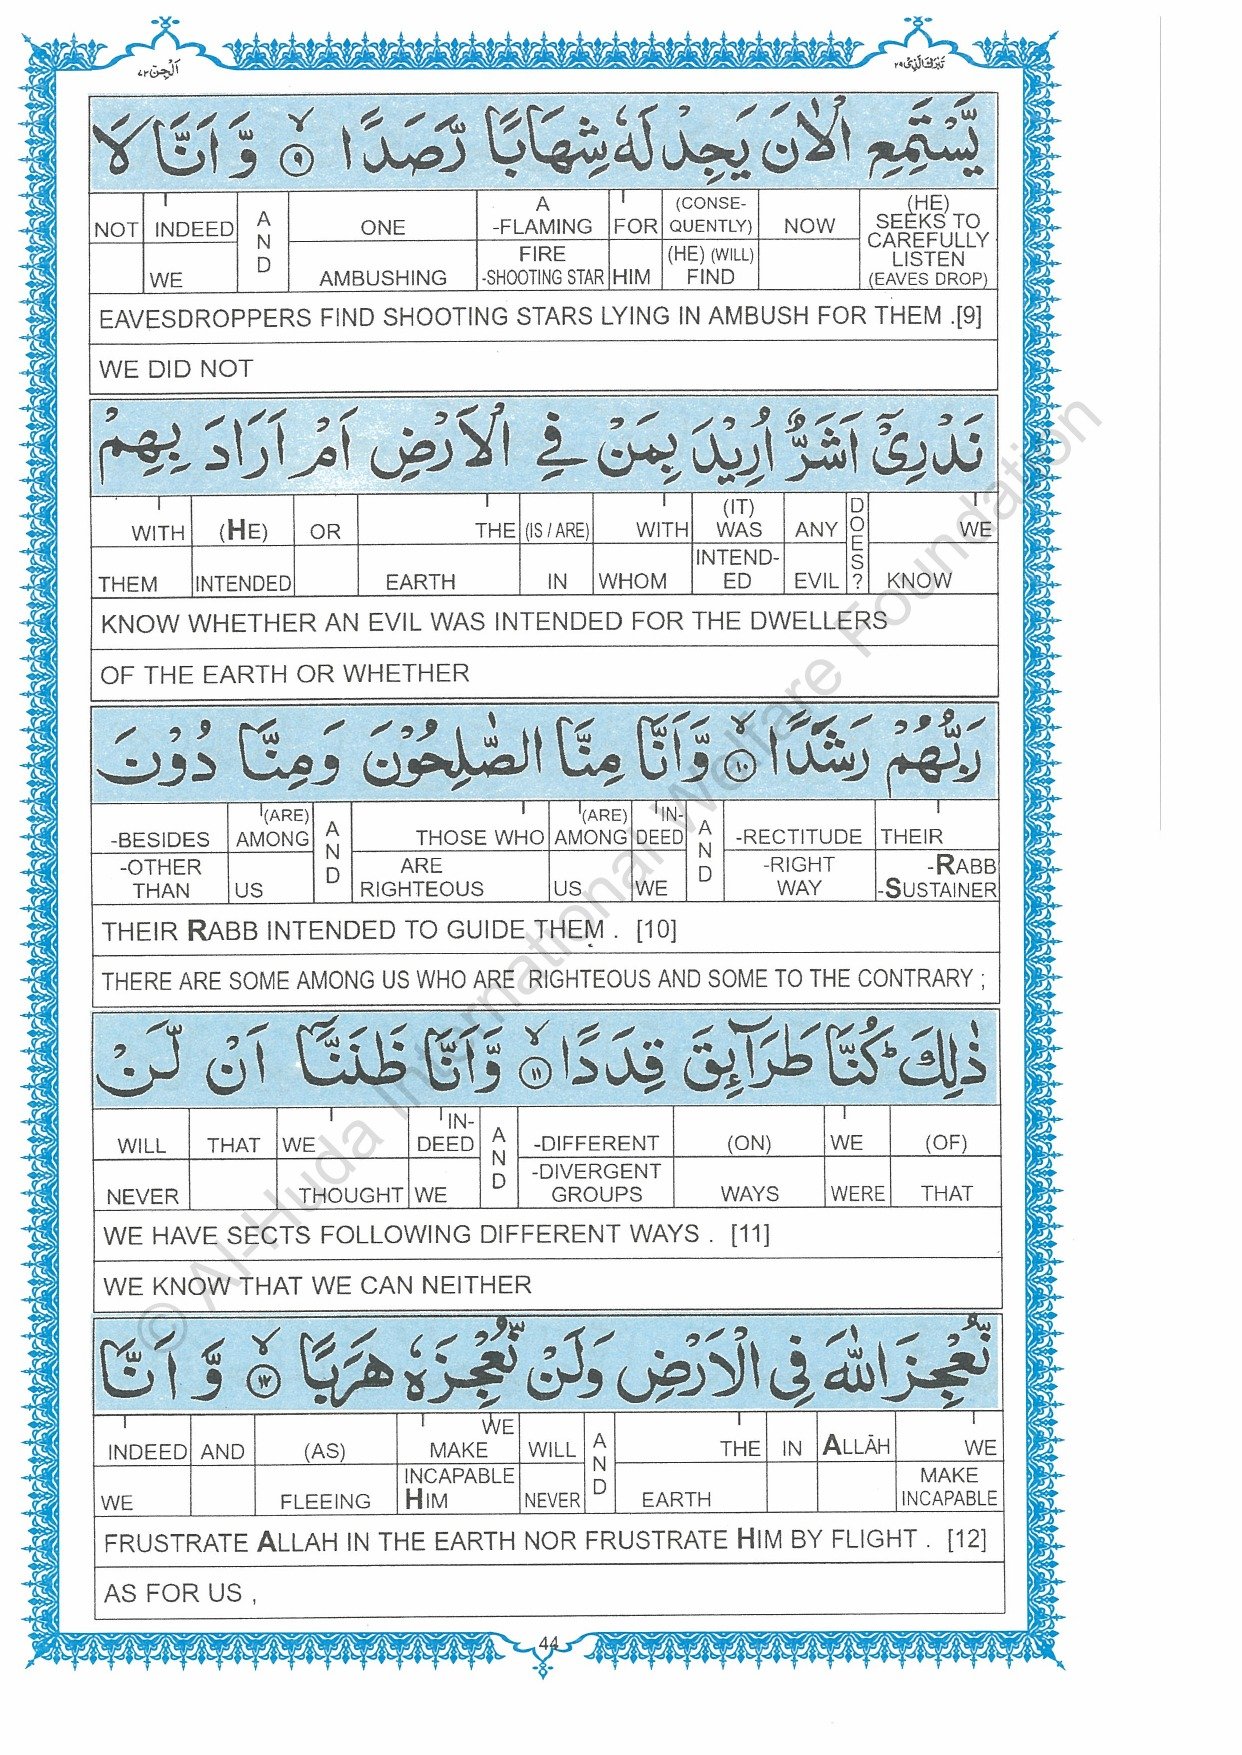 اَلْجِنّ ٧٢
تَبٰرَكَ الَّذِیْ ٢٩
يَّسْتَمِعِ الْاٰنَ يَجِدْ لَهٗ شِهَابًا رَّصَدًا ۙ ٩ وَّ اَنَّا لَا
NOT INDEED WE AND ONE AMBUSHING A -FLAMING FIRE -SHOOTING STAR FOR HIM (CONSE-QUENTLY) (HE) (WILL) FIND NOW (HE) SEEKS TO CAREFULLY LISTEN (EAVES DROP)
EAVESDROPPERS FIND SHOOTING STARS LYING IN AMBUSH FOR THEM .[9]
WE DID NOT
نَدْرِیْۤ اَشَرٌّ اُرِيْدَ بِمَنْ فِی الْاَرْضِ اَمْ اَرَادَ بِهِمْ
WITH THEM (HE) INTENDED OR THE EARTH (IS / ARE) IN WITH WHOM (IT) WAS INTEND-ED ANY EVIL DOES? WE KNOW
KNOW WHETHER AN EVIL WAS INTENDED FOR THE DWELLERS
OF THE EARTH OR WHETHER
رَبُّهُمْ رَشَدًا ۙ ١٠ وَّ اَنَّا مِنَّا الصّٰلِحُوْنَ وَ مِنَّا دُوْنَ
-BESIDES -OTHER THAN (ARE) AMONG US AND THOSE WHO ARE RIGHTEOUS (ARE) AMONG US IN-DEED WE AND -RECTITUDE -RIGHT WAY THEIR -RABB -SUSTAINER
THEIR RABB INTENDED TO GUIDE THEM . [10]
THERE ARE SOME AMONG US WHO ARE RIGHTEOUS AND SOME TO THE CONTRARY ;
ذٰلِكَ ؕ كُنَّا طَرَآئِقَ قِدَدًا ۙ ١١ وَّ اَنَّا ظَنَنَّاۤ اَنْ لَّنْ
WILL NEVER THAT WE THOUGHT IN-DEED WE AND -DIFFERENT -DIVERGENT GROUPS (ON) WAYS WE WERE (OF) THAT
WE HAVE SECTS FOLLOWING DIFFERENT WAYS . [11]
WE KNOW THAT WE CAN NEITHER
نُّعْجِزَ اللّٰهَ فِی الْاَرْضِ وَ لَنْ نُّعْجِزَهٗ هَرَبًا ۙ ١٢ وَّ اَنَّا
INDEED WE AND (AS) FLEEING WE MAKE INCAPABLE HIM WILL NEVER AND THE EARTH IN ALLĀH WE MAKE INCAPABLE
FRUSTRATE ALLAH IN THE EARTH NOR FRUSTRATE HIM BY FLIGHT . [12]
AS FOR US ,
44
© Al-Huda International Welfare Foundation